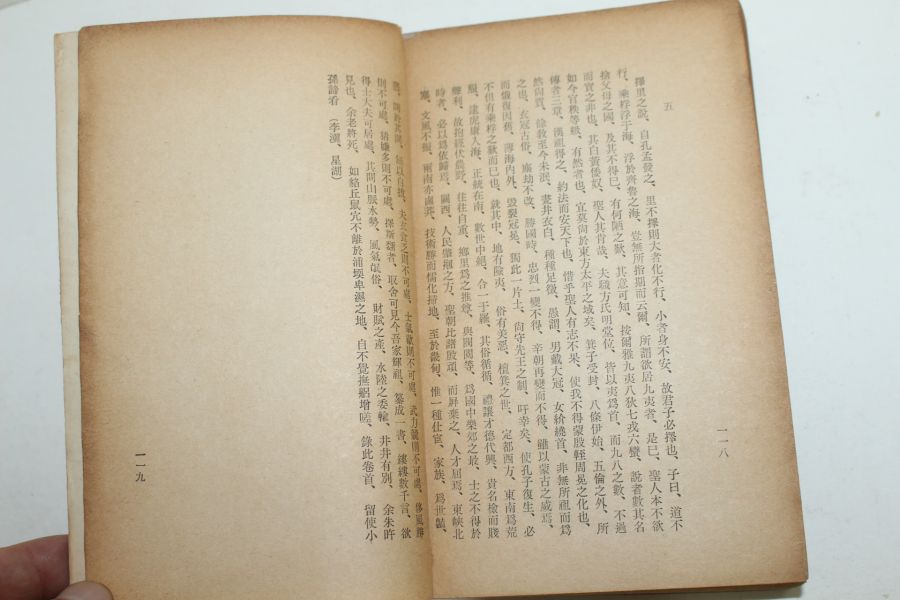 五
擇里之說、自孔孟發之、里不擇則大者化不行、小者身不安、故君子必擇也、子曰、道不
行、乘桴浮于海、浮於齊魯之海、豈無所指期而云爾、所謂欲居九夷者、是已、聖人本不欲
捨父母之國、及其不得已、有何陋之歎、其意可知、按爾雅九夷八狄七戎六蠻、說者數其名
而實之非也、其白黃倭奴、聖人其肯哉、夫職方氏明堂位、皆以夷爲首、而九八之數、不過
如今官秩等級、有然者也、宜莫尙於東方太平之域矣、箕子受封、八條伊始、五倫之外、所
傳者三章、漢祖得之、約法而安天下也、惜乎聖人有志不果、使我不得蒙殷輊周冕之化也、
然尙賁、徐敎至今未泯、薑井衣白、種種足徵、愚謂、男戴大冠、女紒繞首、非無所祖而爲
之也、衣冠古俗、塵劫不改、勝國時、忠烈一變不得、辛朝再變而不得、雖以蒙古之威焉、
而儀復因舊、薄海內外、毁裂冠冕、獨此一片土、尙守先王之制、吁幸矣、使孔子復生、必
不但有乘桴之歎而已也、就其中、地有險夷、俗有美惡、檀箕之世、定都西方、東南爲荒
服、逮虎康入海、正統在南、數世中絕、合一于羅、其俗循循、禮讓才德代興、貴名檢而賤
聲利、故抱經伏農野、往往自重、鄕里爲之推尊、與閥閱等、爲國中樂郊之最、士之不得於
時者、必以爲依歸焉、關西、人民肇刱之方、聖朝比諸殷項、而屛棄之、人才屈焉、東峽北
塞、文風不振、兩南亦鹵莽、技術勝而儒化掃地、至於畿甸、惟一種仕宦、家族、爲世齕
一一八
則不可處、猜嫌多則不可處、擇斯翦者、取舍可見今吾家輝祖、纂成一書、縷縷數千言、欲
得士大夫可居處、其間山脈水勢、風氣氓俗、財賦之產、水陸之委輸、井井有別、余朱昨
見也、余老將死、如貉丘鼠穴不離於浦堧卑濕之地、自不覺撫躬增嗟、錄此卷首、留使小
孫諦看 (李瀷、星湖)
一一九